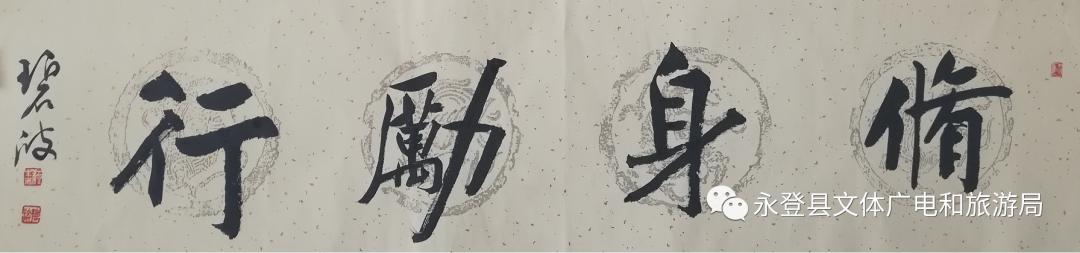 脩身勵行
碧波
永登县文体广电和旅游局